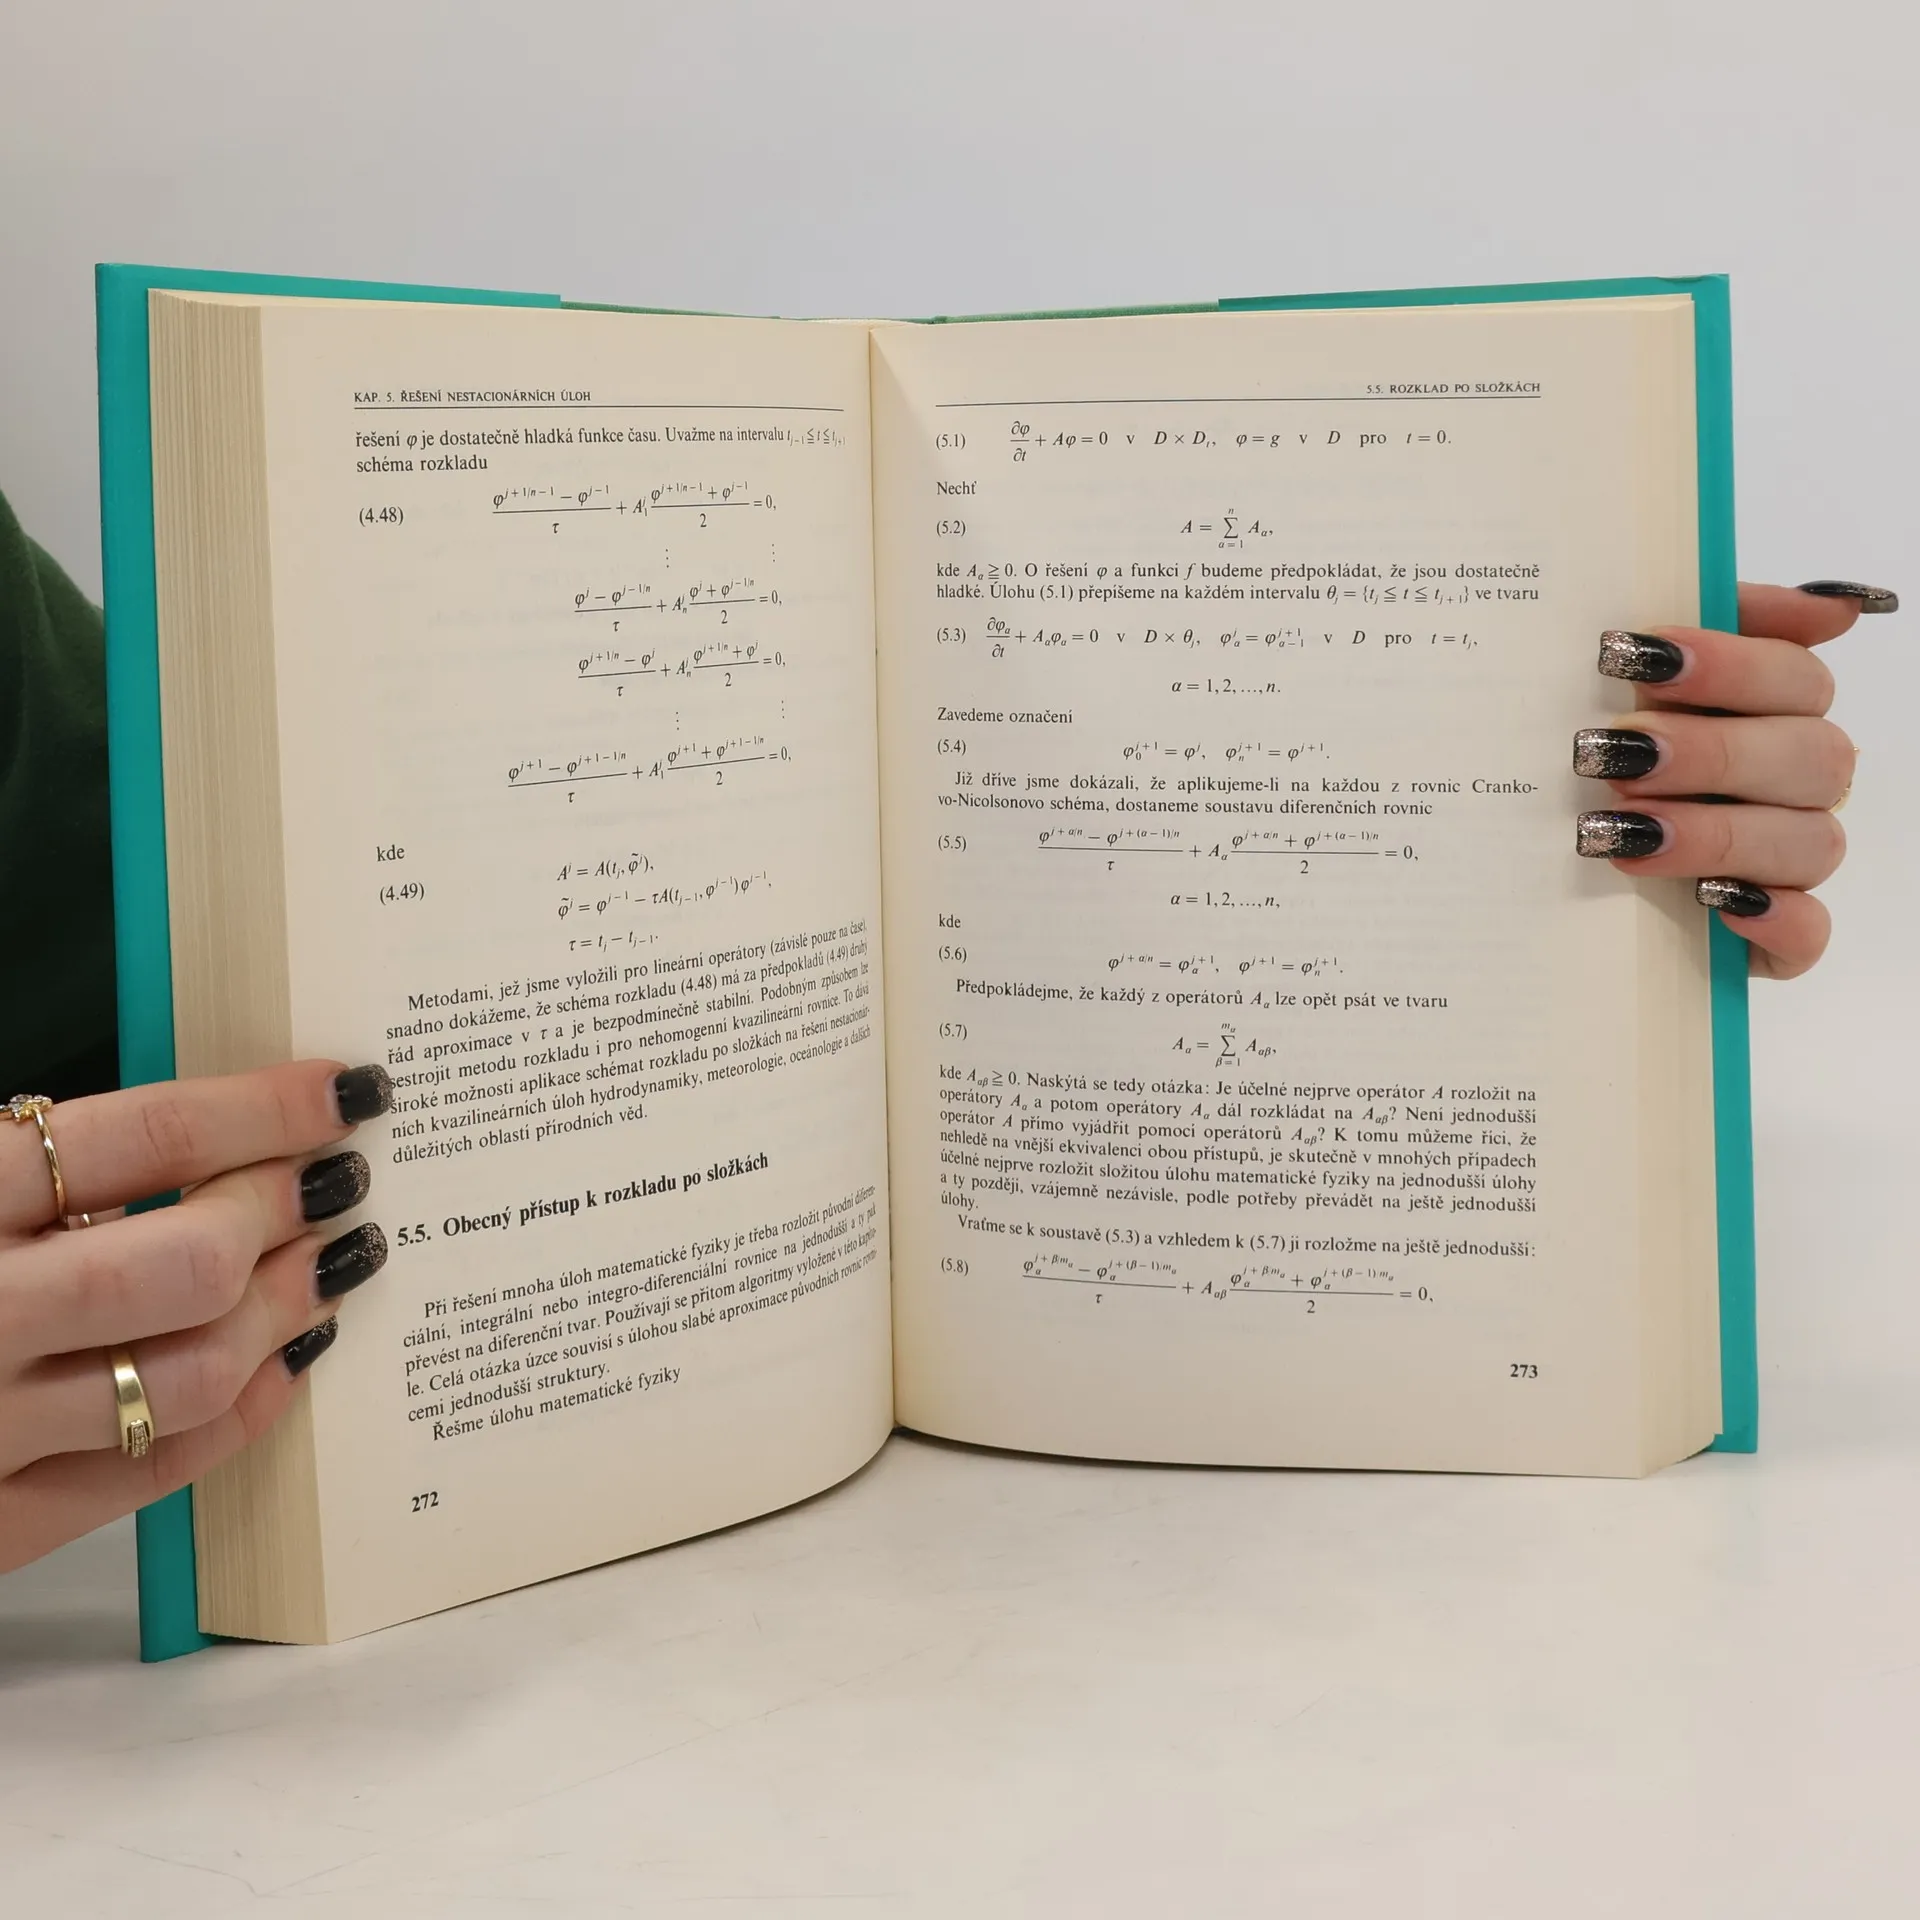 KAP. 5. ŘEŠENÍ NESTACIONÁRNÍCH ÚLOH
řešení φ je dostatečně hladká funkce času. Uvažme na intervalu t_{j-1} ≦ t ≦ t_{j+1}
schéma rozkladu
(4.48) (φ^{j+1/n-1} − φ^{j-1})/τ + A_1^j (φ^{j+1/n-1} + φ^{j-1})/2 = 0,
⋮ ⋮
(φ^j − φ^{j-1/n})/τ + A_n^j (φ^j + φ^{j-1/n})/2 = 0,
(φ^{j+1/n} − φ^j)/τ + A_n^j (φ^{j+1/n} + φ^j)/2 = 0,
⋮ ⋮
(φ^{j+1} − φ^{j+1-1/n})/τ + A_1^j (φ^{j+1} + φ^{j+1-1/n})/2 = 0,
kde
A^j = A(t_j, φ̃^j),
(4.49) φ̃^j = φ^{j-1} − τA(t_{j-1}, φ^{j-1})φ^{j-1},
τ = t_j − t_{j-1}.
Metodami, jež jsme vyložili pro lineární operátory (závislé pouze na čase),
snadno dokážeme, že schéma rozkladu (4.48) má za předpokladů (4.49) druhý
řád aproximace v τ a je bezpodmínečně stabilní. Podobným způsobem lze
sestrojit metodu rozkladu i pro nehomogenní kvazilineární rovnice. To dává
široké možnosti aplikace schémat rozkladu po složkách na řešení nestacionár-
ních kvazilineárních úloh hydrodynamiky, meteorologie, oceánologie a dalších
důležitých oblastí přírodních věd.
5.5. Obecný přístup k rozkladu po složkách
Při řešení mnoha úloh matematické fyziky je třeba rozložit původní diferen-
ciální, integrální nebo integro-diferenciální rovnice na jednodušší a ty pak
převést na diferenční tvar. Používají se přitom algoritmy vyložené v této kapito-
le. Celá otázka úzce souvisí s úlohou slabé aproximace původních rovnic rovni-
cemi jednodušší struktury.
Řešme úlohu matematické fyziky
272
5.5. ROZKLAD PO SLOŽKÁCH
(5.1) ∂φ/∂t + Aφ = 0 v D × D_t, φ = g v D pro t = 0.
Nechť
(5.2) A = ∑_{α=1}^{n} A_α,
kde A_α ≧ 0. O řešení φ a funkci f budeme předpokládat, že jsou dostatečně
hladké. Úlohu (5.1) přepíšeme na každém intervalu θ_j = {t_j ≦ t ≦ t_{j+1}} ve tvaru
(5.3) ∂φ_α/∂t + A_αφ_α = 0 v D × θ_j, φ_α^j = φ_{α-1}^{j+1} v D pro t = t_j,
α = 1, 2, ..., n.
Zavedeme označení
(5.4) φ_0^{j+1} = φ^j, φ_n^{j+1} = φ^{j+1}.
Již dříve jsme dokázali, že aplikujeme-li na každou z rovnic Cranko-
vo-Nicolsonovo schéma, dostaneme soustavu diferenčních rovnic
(5.5) (φ^{j+α/n} − φ^{j+(α−1)/n})/τ + A_α (φ^{j+α/n} + φ^{j+(α−1)/n})/2 = 0,
α = 1, 2, ..., n,
kde
(5.6) φ^{j+α/n} = φ_α^{j+1}, φ^{j+1} = φ_n^{j+1}.
Předpokládejme, že každý z operátorů A_α lze opět psát ve tvaru
(5.7) A_α = ∑_{β=1}^{m_α} A_{αβ},
kde A_{αβ} ≧ 0. Naskýtá se tedy otázka: Je účelné nejprve operátor A rozložit na
operátory A_α a potom operátory A_α dál rozkládat na A_{αβ}? Není jednodušší
operátor A přímo vyjádřit pomocí operátorů A_{αβ}? K tomu můžeme říci, že
nehledě na vnější ekvivalenci obou přístupů, je skutečně v mnohých případech
účelné nejprve rozložit složitou úlohu matematické fyziky na jednodušší úlohy
a ty později, vzájemně nezávisle, podle potřeby převádět na ještě jednodušší
úlohy.
Vraťme se k soustavě (5.3) a vzhledem k (5.7) ji rozložme na ještě jednodušší:
(5.8) (φ_α^{j+β/m_α} − φ_α^{j+(β−1)/m_α})/τ + A_{αβ} (φ_α^{j+β/m_α} + φ_α^{j+(β−1)/m_α})/2 = 0,
273